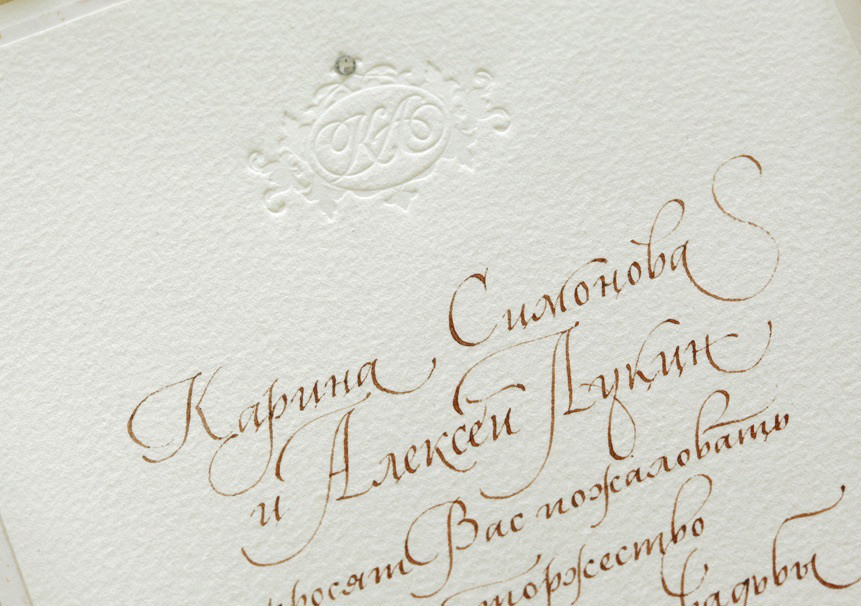 КА
Карина Симонова
и Алексей Лукин
просят Вас пожаловать
торжество
свадьбы